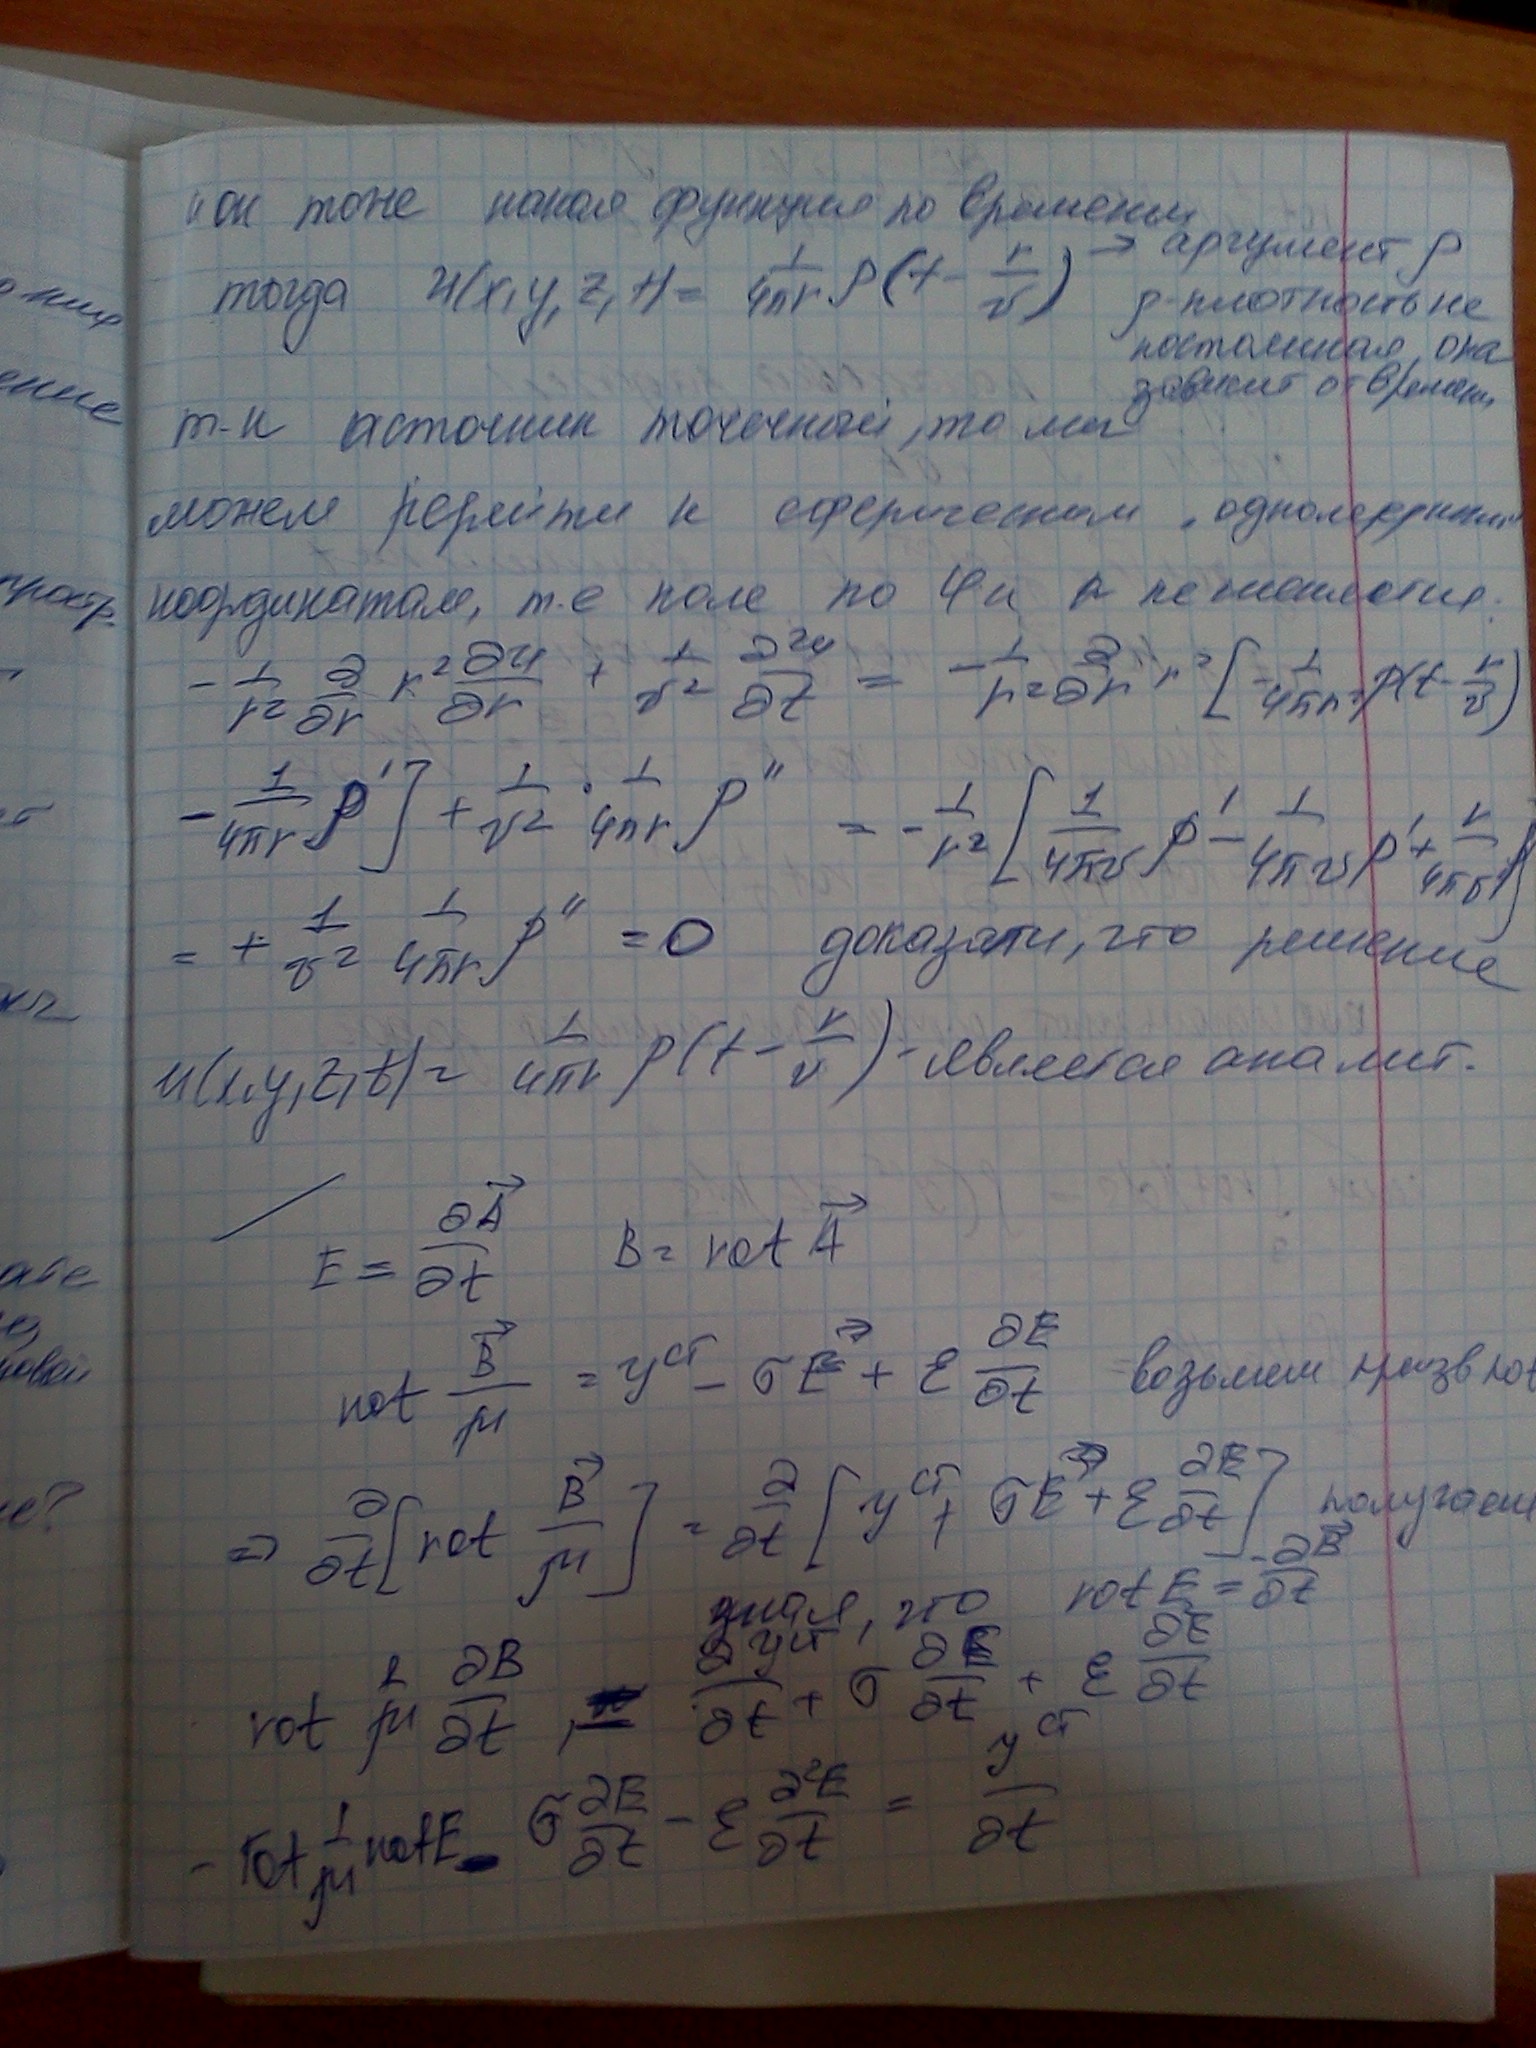 он тоже некая функция по времени
тогда u(x,y,z,t) = 1/4πr ρ(t - r/v) → аргумент ρ
ρ-плотность не
постоянная, она
зависит от времени
т-к источник точечный, то мы
можем перейти к сферическим, одномерным
координатам, т.е поле по φ и не меняется.
-1/r² ∂/∂r r² ∂u/∂r + 1/v² ∂²u/∂t = -1/r² ∂/∂r r² [-1/4πr² ρ(t - r/v)
- 1/4πr ρ'] + 1/v² · 1/4πr ρ'' = -1/r² [1/4πv ρ' - 1/4πv ρ' + r/4πv
= + 1/v² 1/4πr ρ'' = 0 доказати, что решение
u(x,y,z,t) = 1/4πr ρ(t - r/v) - является аналит.
E = ∂A⃗/∂t B = rot A⃗
rot B⃗/μ = y^ст - σE⃗ + ε ∂E/∂t возьмем произв rot
=> ∂/∂t [rot B⃗/μ] = ∂/∂t [y^ст + σE⃗ + ε ∂E/∂t] получаем
зная, что rot E = -∂B⃗/∂t
rot 1/μ ∂B/∂t = ∂y^ст/∂t + σ ∂E/∂t + ε ∂E/∂t
- rot 1/μ rot E - σ ∂E/∂t - ε ∂²E/∂t = y^ст/∂t
ение
простр.